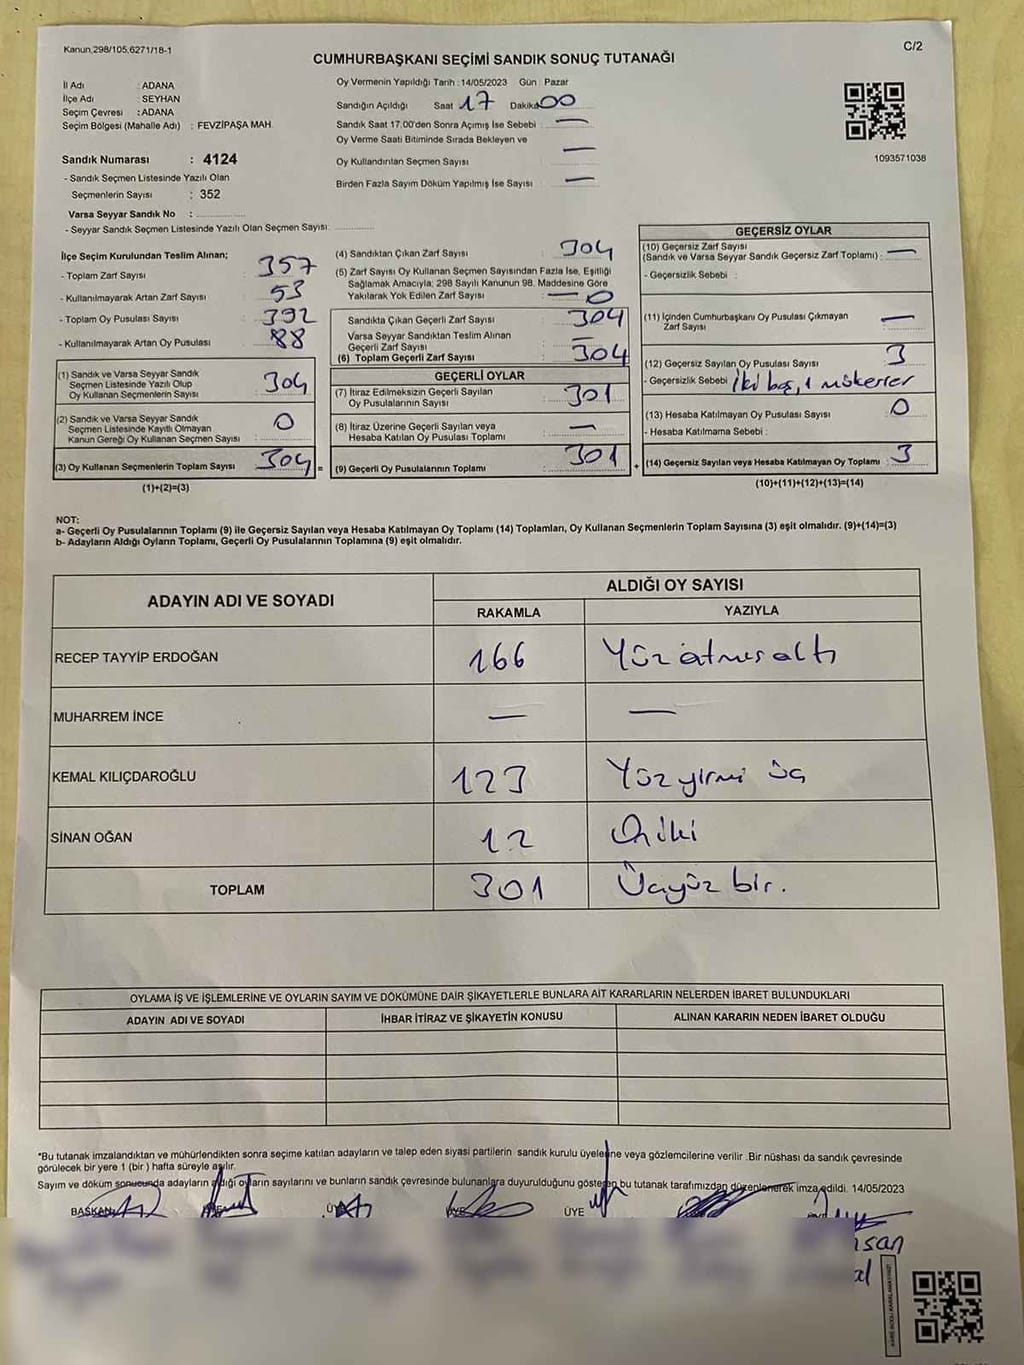 Kanun.298/105,6271/18-1
C/2
CUMHURBAŞKANI SEÇİMİ SANDIK SONUÇ TUTANAĞI
İl Adı : ADANA
İlçe Adı : SEYHAN
Seçim Çevresi : ADANA
Seçim Bölgesi (Mahalle Adı) : FEVZİPAŞA MAH.
Sandık Numarası : 4124
- Sandık Seçmen Listesinde Yazılı Olan
Seçmenlerin Sayısı : 352
Varsa Seyyar Sandık No :
- Seyyar Sandık Seçmen Listesinde Yazılı Olan Seçmen Sayısı:
Oy Vermenin Yapıldığı Tarih : 14/05/2023 Gün : Pazar
Sandığın Açıldığı Saat 17 Dakika 00
Sandık Saat 17.00'den Sonra Açımış İse Sebebi : —
Oy Verme Saati Bitiminde Sırada Bekleyen ve
Oy Kullandırılan Seçmen Sayısı —
Birden Fazla Sayım Döküm Yapılmış İse Sayısı —
1093571038
İlçe Seçim Kurulundan Teslim Alınan;
- Toplam Zarf Sayısı : 357
- Kullanılmayarak Artan Zarf Sayısı : 53
- Toplam Oy Pusulası Sayısı : 392
- Kullanılmayarak Artan Oy Pusulası : 88
(1) Sandık ve Varsa Seyyar Sandık
Seçmen Listesinde Yazılı Olup
Oy Kullanan Seçmenlerin Sayısı : 304
(2) Sandık ve Varsa Seyyar Sandık
Seçmen Listesinde Kayıtlı Olmayan
Kanun Gereği Oy Kullanan Seçmen Sayısı : 0
(3) Oy Kullanan Seçmenlerin Toplam Sayısı : 304 =
(1)+(2)=(3)
(4) Sandıktan Çıkan Zarf Sayısı : 304
(5) Zarf Sayısı Oy Kullanan Seçmen Sayısından Fazla İse, Eşitliği
Sağlamak Amacıyla; 298 Sayılı Kanunun 98. Maddesine Göre
Yakılarak Yok Edilen Zarf Sayısı : — 0
Sandıkta Çıkan Geçerli Zarf Sayısı : 304
Varsa Seyyar Sandıktan Teslim Alınan
Geçerli Zarf Sayısı : —
(6) Toplam Geçerli Zarf Sayısı : 304
GEÇERLİ OYLAR
(7) İtiraz Edilmeksizin Geçerli Sayılan
Oy Pusulalarının Sayısı : 301
(8) İtiraz Üzerine Geçerli Sayılan veya
Hesaba Katılan Oy Pusulası Toplamı : —
(9) Geçerli Oy Pusulalarının Toplamı : 301 +
GEÇERSİZ OYLAR
(10) Geçersiz Zarf Sayısı
(Sandık ve Varsa Seyyar Sandık Geçersiz Zarf Toplamı) : —
- Geçersizlik Sebebi :
(11) İçinden Cumhurbaşkanı Oy Pusulası Çıkmayan
Zarf Sayısı : —
(12) Geçersiz Sayılan Oy Pusulası Sayısı : 3
- Geçersizlik Sebebi : İki boş, 1 mükerrer
(13) Hesaba Katılmayan Oy Pusulası Sayısı : 0
- Hesaba Katılmama Sebebi :
(14) Geçersiz Sayılan veya Hesaba Katılmayan Oy Toplamı : 3
(10)+(11)+(12)+(13)=(14)
NOT:
a- Geçerli Oy Pusulalarının Toplamı (9) ile Geçersiz Sayılan veya Hesaba Katılmayan Oy Toplamı (14) Toplamları, Oy Kullanan Seçmenlerin Toplam Sayısına (3) eşit olmalıdır. (9)+(14)=(3)
b- Adayların Aldığı Oyların Toplamı, Geçerli Oy Pusulalarının Toplamına (9) eşit olmalıdır.
ADAYIN ADI VE SOYADI
ALDIĞI OY SAYISI
RAKAMLA YAZIYLA
RECEP TAYYİP ERDOĞAN 166 Yüz atmış altı
MUHARREM İNCE — —
KEMAL KILIÇDAROĞLU 123 Yüz yirmi üç
SİNAN OĞAN 12 Oniki
TOPLAM 301 Üçyüz bir.
OYLAMA İŞ VE İŞLEMLERİNE VE OYLARIN SAYIM VE DÖKÜMÜNE DAİR ŞİKAYETLERLE BUNLARA AİT KARARLARIN NELERDEN İBARET BULUNDUKLARI
ADAYIN ADI VE SOYADI İHBAR İTİRAZ VE ŞİKAYETİN KONUSU ALINAN KARARIN NEDEN İBARET OLDUĞU
*Bu tutanak imzalandıktan ve mühürlendikten sonra seçime katılan adayların ve talep eden siyasi partilerin sandık kurulu üyelerine veya gözlemcilerine verilir .Bir nüshası da sandık çevresinde
görülecek bir yere 1 (bir ) hafta süreyle asılır.
Sayım ve döküm sonucunda adayların aldığı oyların sayılarını ve bunların sandık çevresinde bulunanlara duyurulduğunu gösteren bu tutanak tarafımızdan düzenlenerek imza edildi. 14/05/2023
BAŞKAN ÜYE ÜYE ÜYE